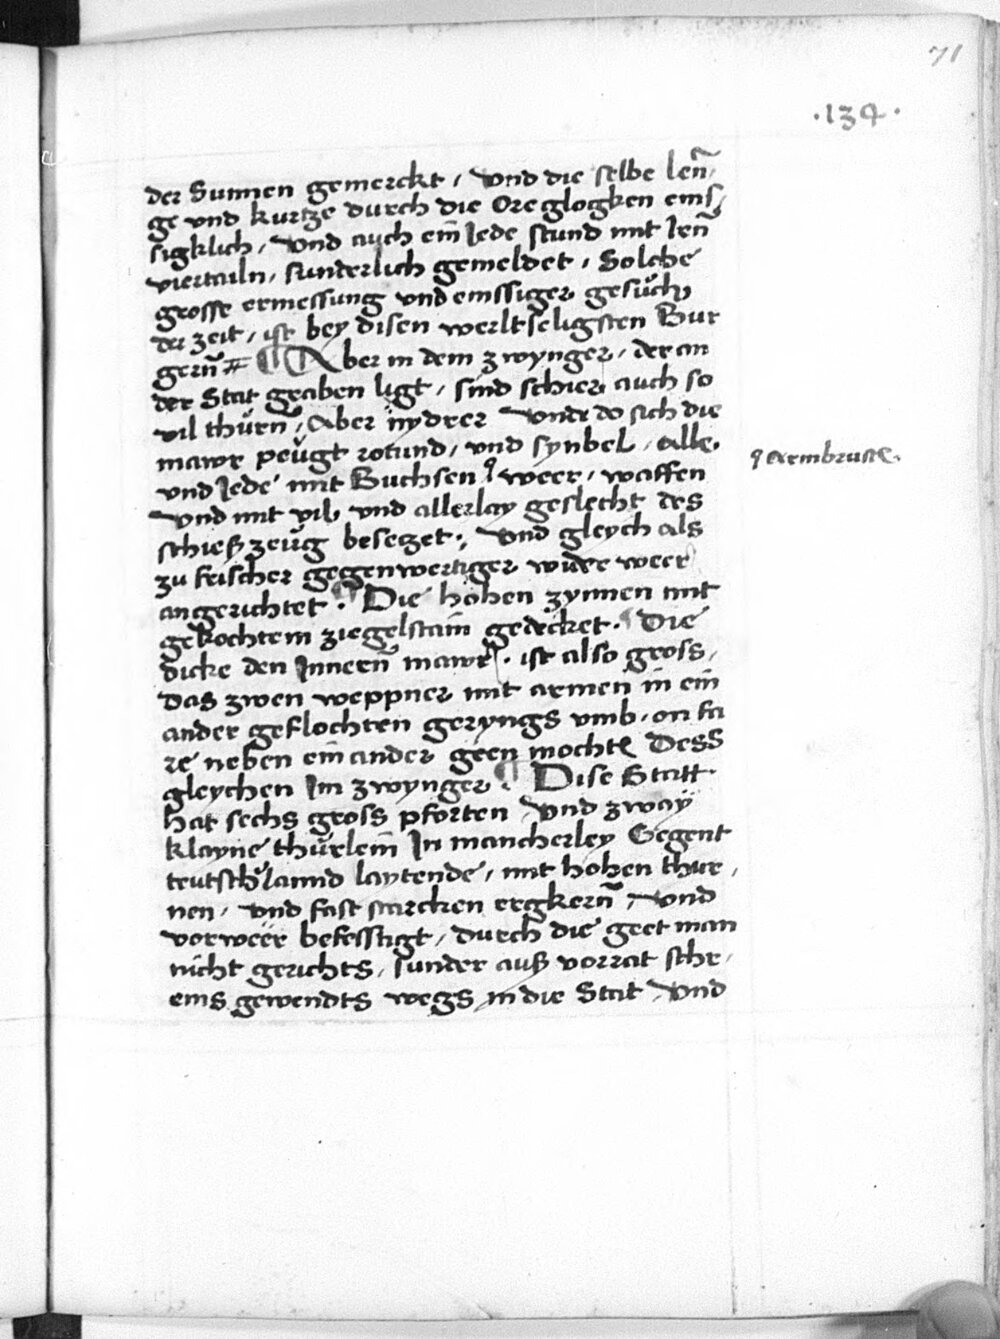 71
·134·
der Sunnen gemerckt, Vnd die selbe len̄,
ge vnd kurtze durch die Oreglogken ems,
sigklich, Vnd auch ein Jede stund mit Jen̄
viertailn, sunderlich gemeldet, Solche
grosse ermessung vnd emssiger gesůch,
der zeit, ist bey disen werltseligsten Bur
gern̄ # ¶ Aber in dem zwynger, der an
der Stat graben ligt, sind schier auch so
vil thürn, Aber nydrer Vndt do sich die
mawr peügt rotund, vnd synbel, alle.
vnd Jede mit Buchsen ꝯ weer, waffen
ꝯ Armbruste.
Vnd mit vil, vnd allerlay geslecht des
schieß zeüg besetzet, Vnd gleych als
zu frischer gegenwertiger wůrt weer
angerichtet. ¶ Die hohen zynnen mit
gekochtem ziegelstain gedecket. ¶ Die
dicke den Innern̄ mawr. ist also gross,
das zwen weppner mit armen in ein
ander geflochten geryngs vmb, on fa
re neben ein ander geen mochtē Dess
gleychen Im zwynger ¶ Dise Statt.
hat sechs gross pforten Vnd zway
klayne thürlein In mancherley Gegent
teutschlannd laytende, mit hohen thur,
nen, vnd fast starcken ergkern̄, Vnd
vorweer befesstigt, durch die geet man
nicht gerichts, sunder auß vorrat schr,
ems gewendts wegs in die Stat Vnd